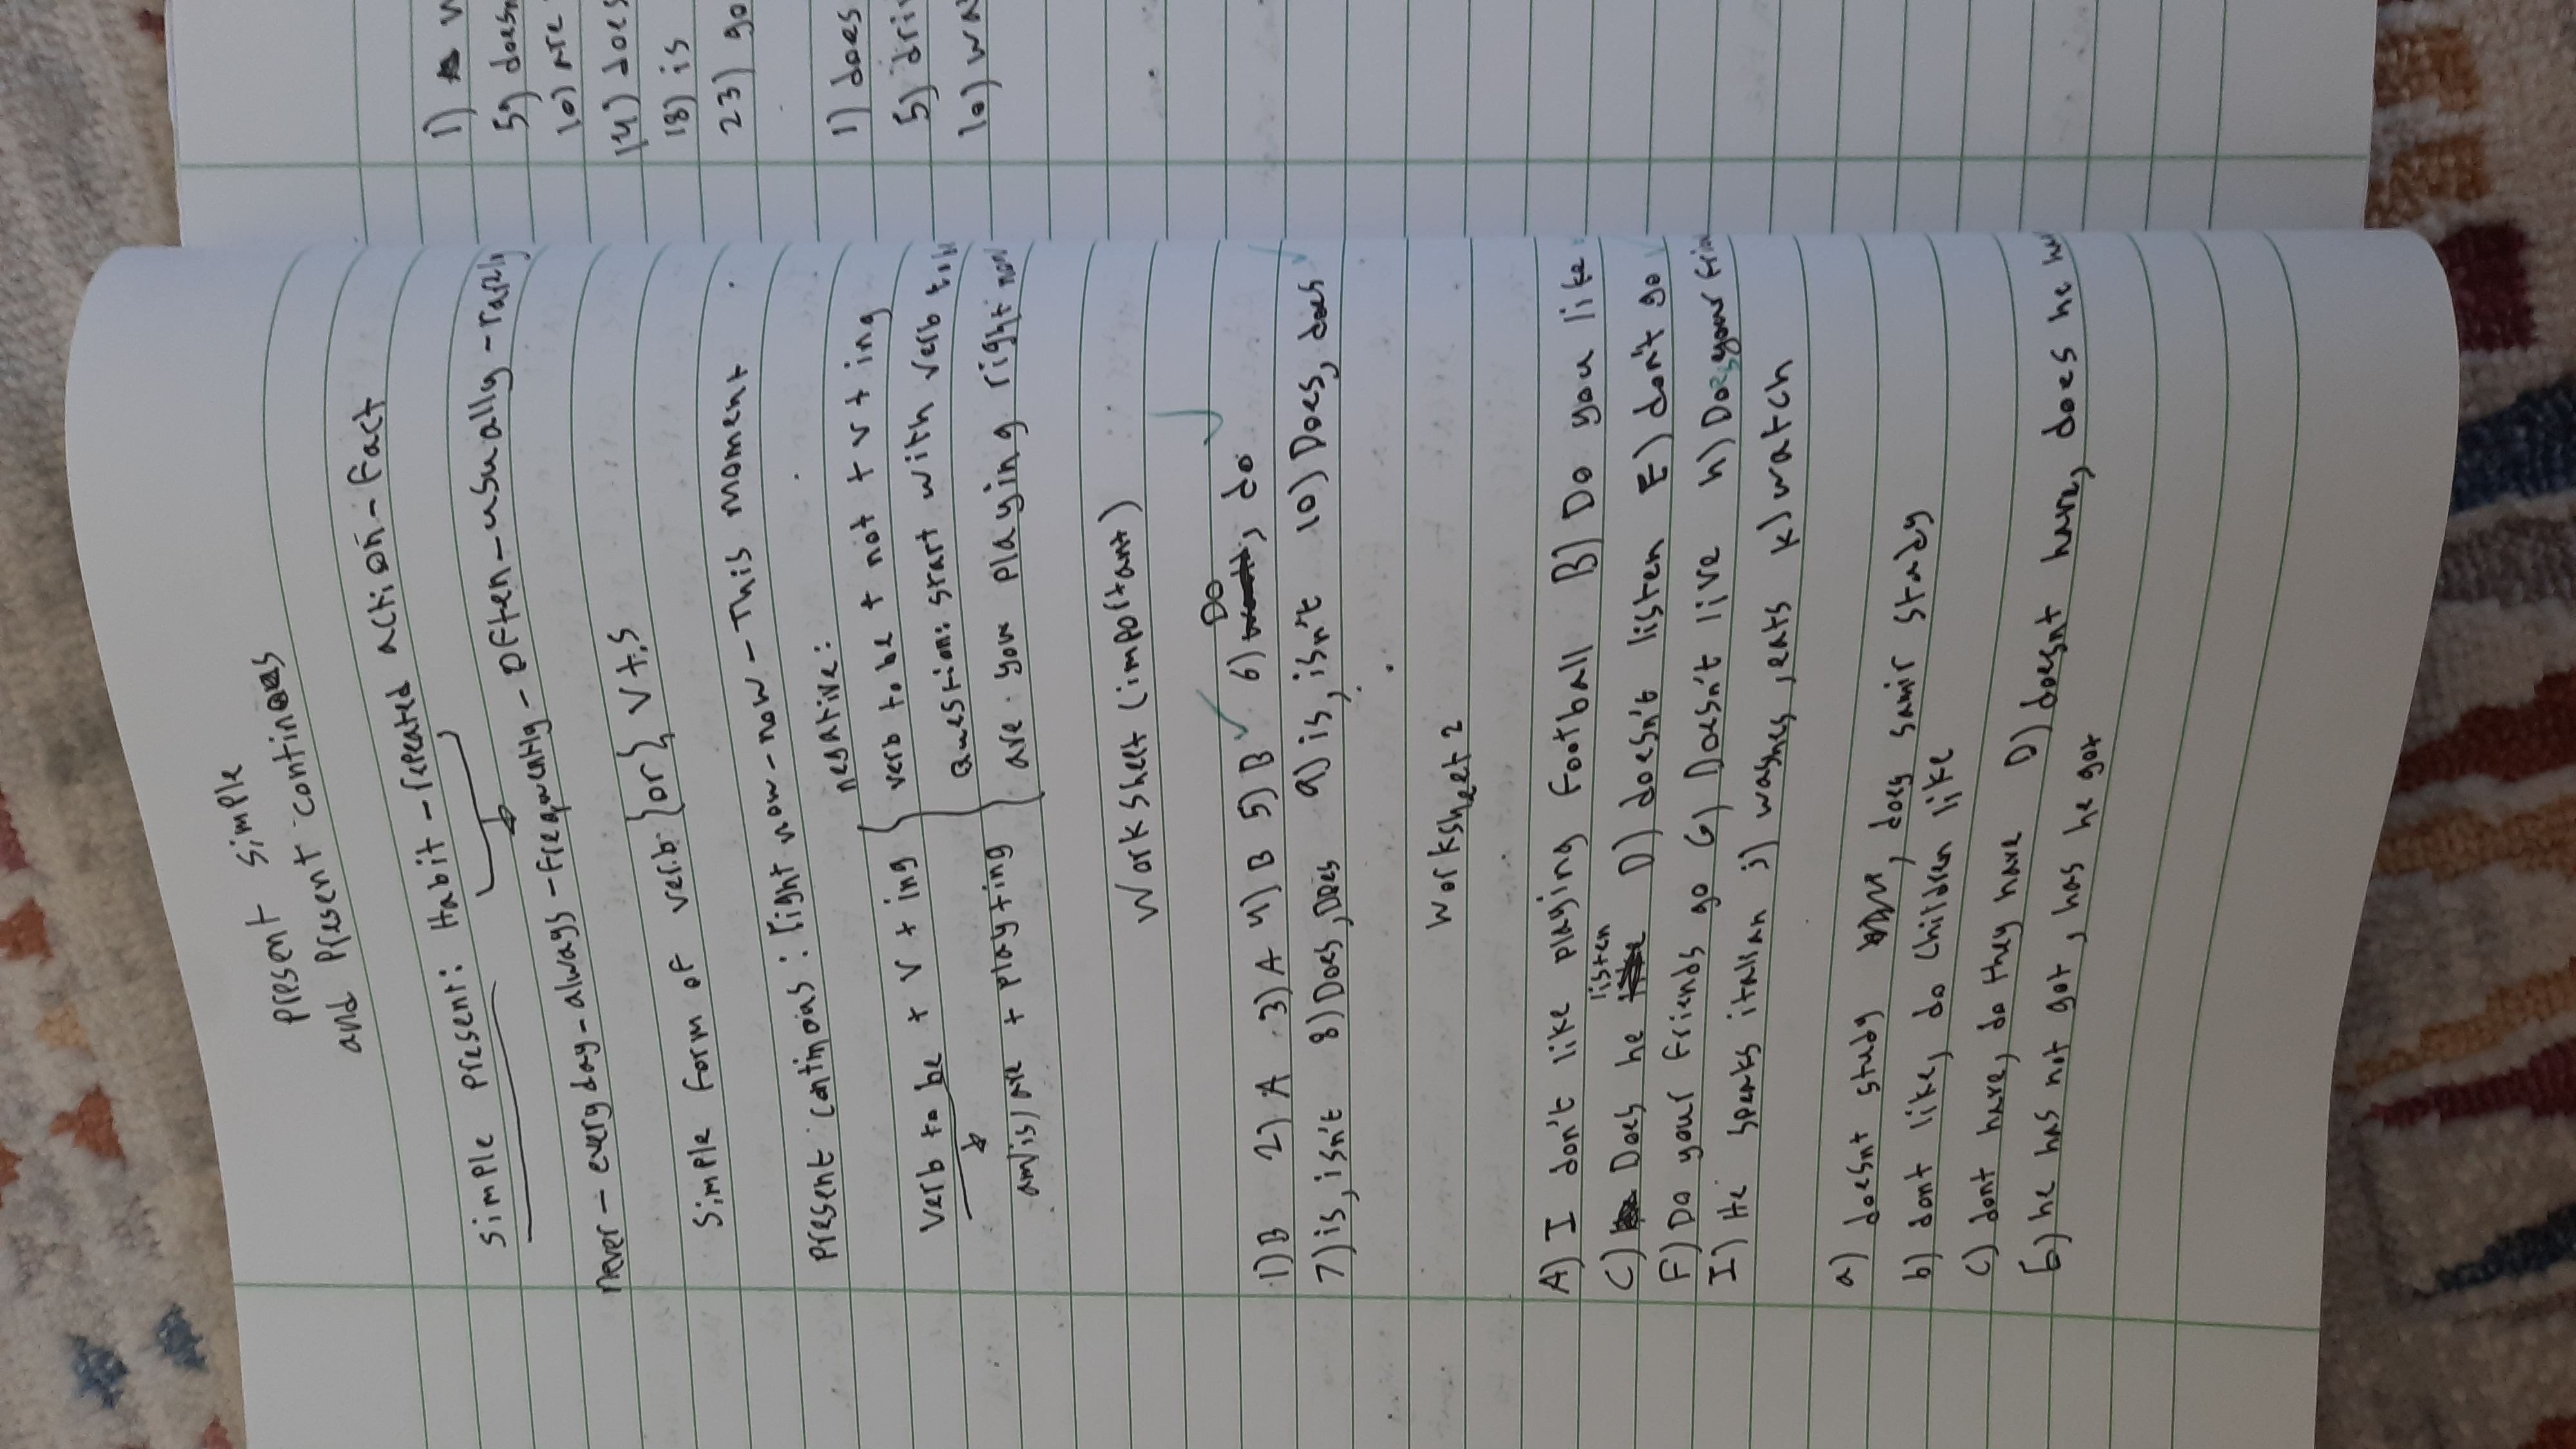 Present simple
and Present continous
simple present: Habit - repeated action - Fact
never - every day - always - frequently - often - usually - rarely
Simple form of verb {or} V + s
Present continous : right now - now - This moment
verb to be + V + ing
am/is/are + play + ing
negative:
verb to be + not + v + ing
Question: start with verb to b
are you playing right now
Worksheet (important)
1) B 2) A 3) A 4) B 5) B 6) Do, do
7) is, isn't 8) Does, Does 9) is, isn't 10) Does, does
Worksheet 2
A) I don't like playing Football B) Do you like
C) Does he listen D) doesn't listen E) don't go
F) Do your friends go G) Doesn't live h) Does your frie
I) He speaks italian j) washes, eats k) watch
a) doesnt study, does samir study
b) dont like, do children like
C) dont have, do they have D) doesnt have, does he ha
E) he has not got, has he got
1) w
5) doesn
10) are
14) does
18) is
23) go
1) does
5) driv
10) wa